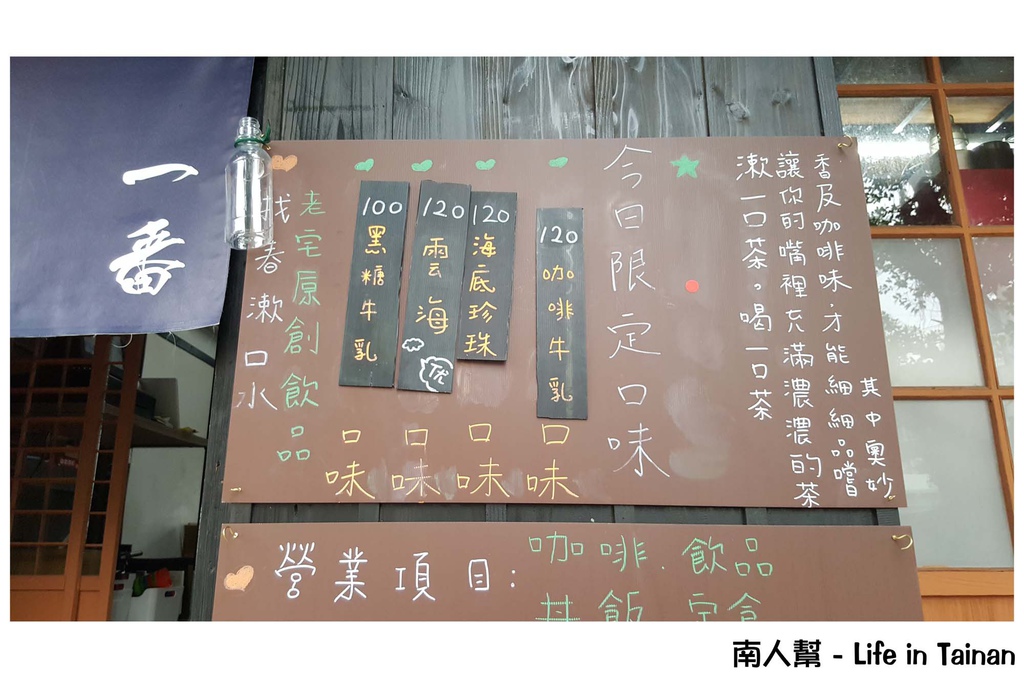 一番
漱一口茶。喝一口茶
讓你的嘴裡充滿濃濃的茶
香及咖啡味.才能細細品嚐
其中奧妙
今日限定口味
120 咖啡牛乳
口味
120 海底珍珠
口味
120 雲海
优
口味
100 黑糖牛乳
口味
老宅原創飲品
找春漱口水
營業項目:
咖啡.飲品
丼飯.定食
南人幫 - Life in Tainan